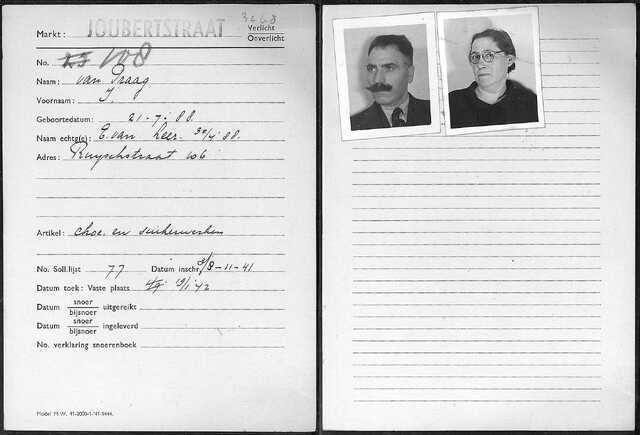 Markt: JOUBERTSTRAAT
Verlicht
Onverlicht
No. 108
Naam: van Praag
Voornaam: I.
Geboortedatum: 21-7-'88
Naam echtg(e): E. van Leer
Adres: Ruyschstraat 106
Artikel: choc. en suikerwerken
No. Soll.lijst 77 Datum inschr. 8-11-41
Datum toek: Vaste plaats
Datum snoer
bijsnoer uitgereikt
Datum snoer
bijsnoer ingeleverd
No. verklaring snoerenboek
Model M.W.